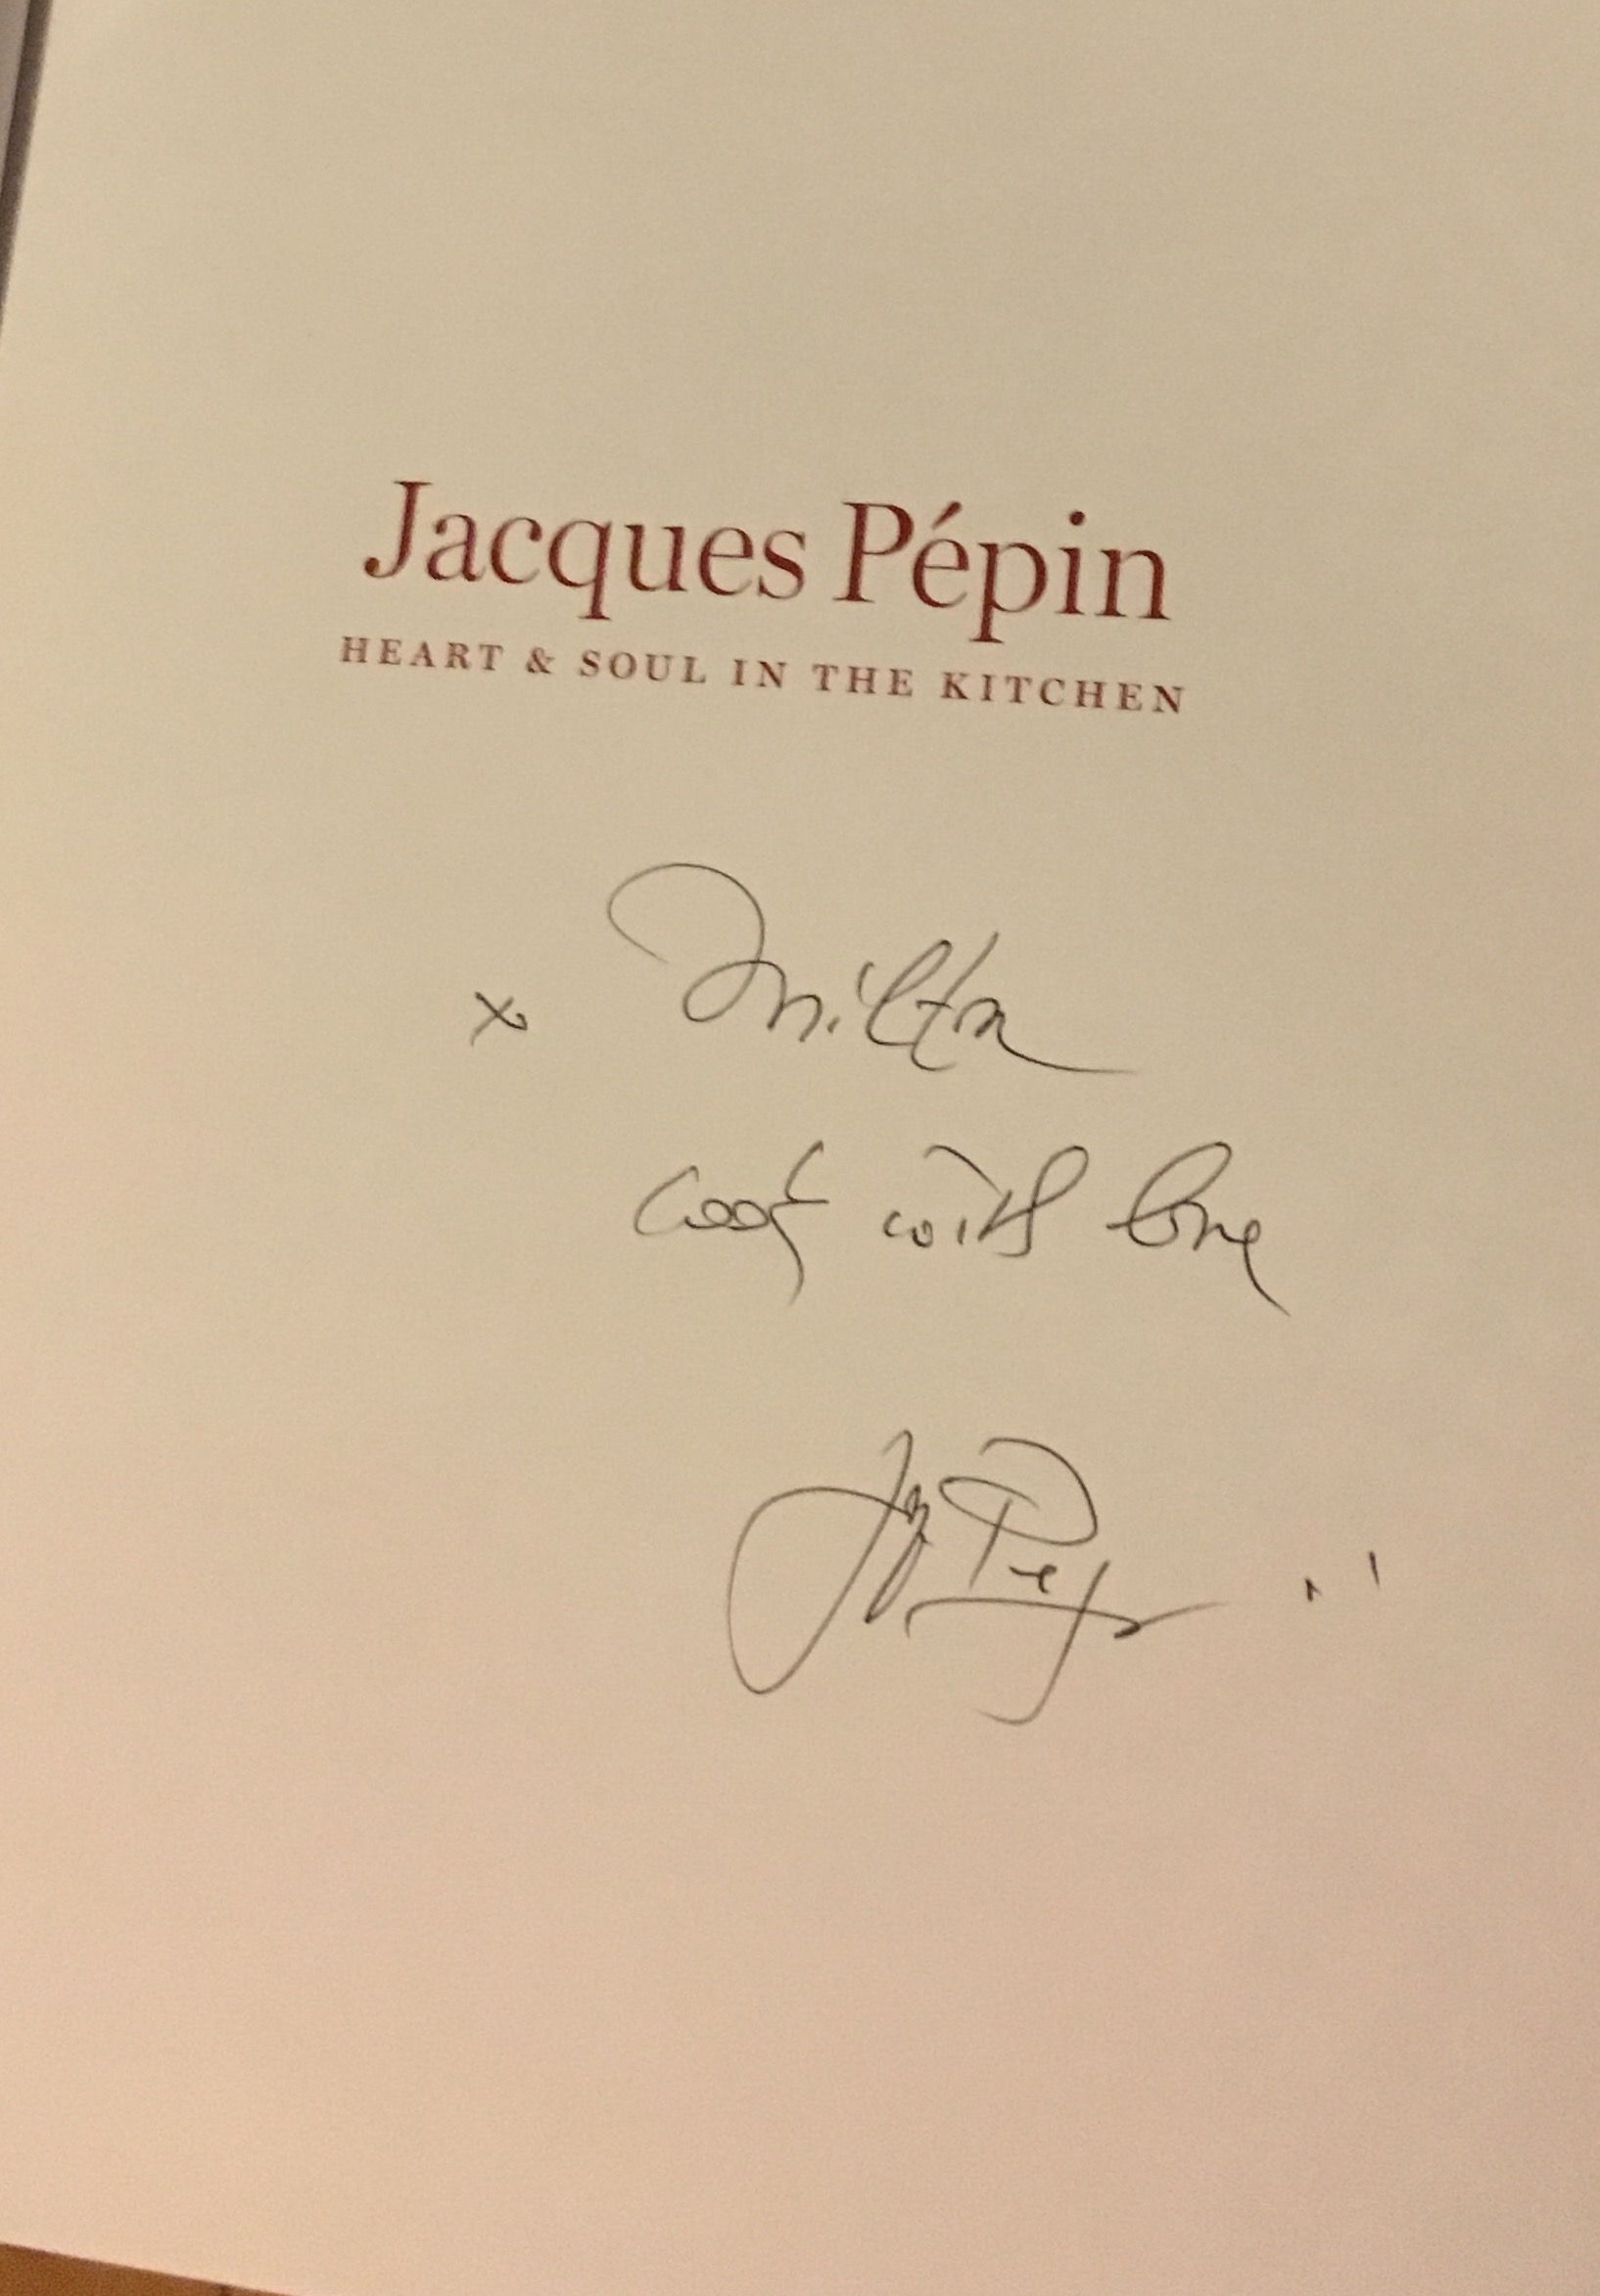 Jacques Pépin
HEART & SOUL IN THE KITCHEN
x Milton
Cook with love